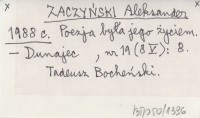 × ZACZYŃSKI Aleksander ×
1988 c. Poezja była jego życiem.
– Dunajec, nr 19 (8 V): 8.
Tadeusz Bocheński.